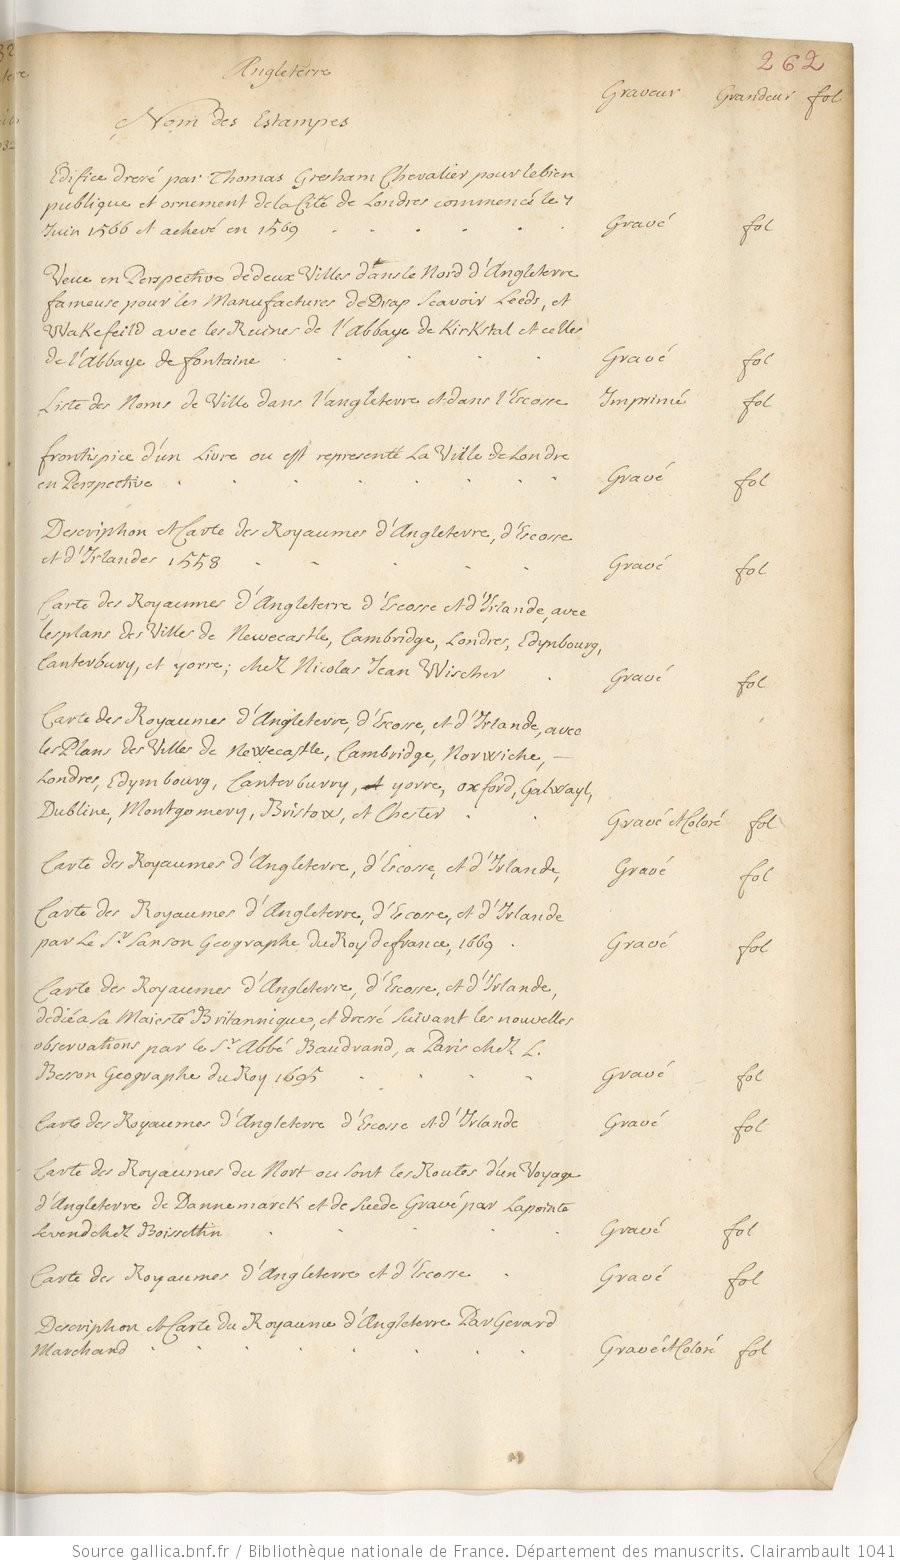 262
Angleterre
Graveur Grandeur fol
Nom des Estampes
Edifice dresé par Thomas Gresham Chevalier pour le bien
publique et ornement de la Cité de Londres commencé le 7
Juin 1566 et achevé en 1569 Gravé fol
Veue en Perspective de deux Villes dans le Nord d'Angleterre
fameuse pour les Manufactures de Drap Scavoir Leeds, et
Wakefeild avec les Ruines de l'Abbaye de Kirkstal et celles
de l'Abbaye de fontaine Gravé fol
Liste des Noms de Ville dans l'angleterre et dans l'Escosse Imprimé fol
frontispice d'un Livre ou est representé La Ville de Londre
en Perspective Gravé fol
Description et Carte des Royaumes d'Angleterre, d'Escosse
et d'Irlandes 1558 Gravé fol
Carte des Royaumes d'Angleterre d'Escosse et d'Irlande, avec
les plans des Villes de Newecastle, Cambridge, Londres, Edynbourg,
Canterbury, et yorre; chez Nicolas Jean Wischer Gravé fol
Carte des Royaumes d'Angleterre, d'Escosse, et d'Irlande, avec
les Plans des Villes de Newecastle, Cambridge, Norwiche, —
Londres, Edymbourg, Canterburry, et yorre, oxford, Galwayl,
Dubline, Montgomery, Bristow, et Chester Gravé et Coloré fol
Carte des Royaumes d'Angleterre, d'Escosse, et d'Irlande, Gravé fol
Carte des Royaumes d'Angleterre, d'Escosse, et d'Irlande
par Le Sr. Sanson Geographe du Roy de france, 1669 Gravé fol
Carte des Royaumes d'Angleterre, d'Escosse, et d'Irlande,
dediéa sa Maiesté Britannique, et dresé suivant les nouvelles
observations par le Sr. Abbé Baudrand, a Paris chez L.
Besson Geographe du Roy 1695 Gravé fol
Carte des Royaumes d'Angleterre d'Escosse et d'Irlande Gravé fol
Carte des Royaumes du Nort ou sont les Routes d'un Voyage
d'Angleterre de Dannemarck et de Suede Gravé par Lapointe
se vend chez Boissettin Gravé fol
Carte des Royaumes d'Angleterre et d'Escosse Gravé fol
Description et Carte du Royaume d'Angleterre Par Gerard
Marchand Gravé et Coloré fol
Source gallica.bnf.fr / Bibliothèque nationale de France. Département des manuscrits. Clairambault 1041